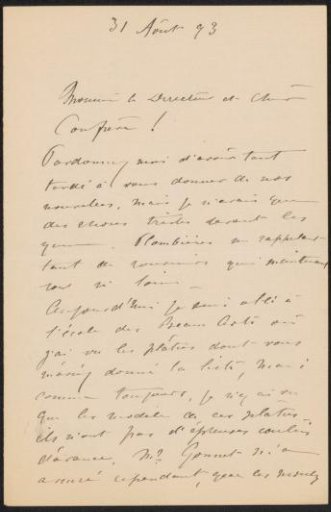 31 Août 93
Monsieur le Directeur et Cher
Confrère !
Pardonnez moi d'avoir tant
tardé à vous donner de nos
nouvelles, mais je n'avais que
des choses tristes devant les
yeux. Plombières me rappelant
tant de souvenirs qui maintenant
sont si loin.
Aujourd'hui je suis allé à
l'école des Beaux Arts où
j'ai vu les plâtres dont vous
m'aviez donné la liste, mais
comme toujours, je n'y ai vu
que les modèles de ces plâtres,
ils n'ont pas d'épreuves coulées
d'avance. Mr. m'a
assuré cependant, que les